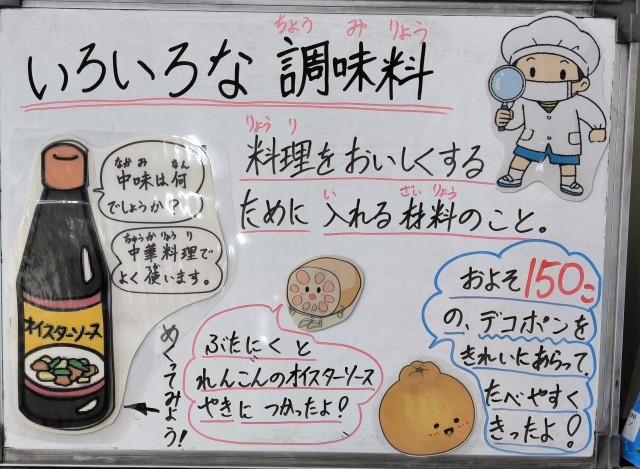 ちょう み りょう
いろいろな 調味料
りょう り
料理をおいしくする
い ざい りょう
ために 入れる 材料のこと。
なか み なん
中味は何
でしょうか？
ちゅうか りょう り
中華料理で
つか
よく使います。
オイスターソース
めくってみよう！
ぶたにくと
れんこんのオイスターソース
やきに つかったよ！
およそ150こ
の、デコポンを
きれいにあらって、
たべやすく
きったよ！